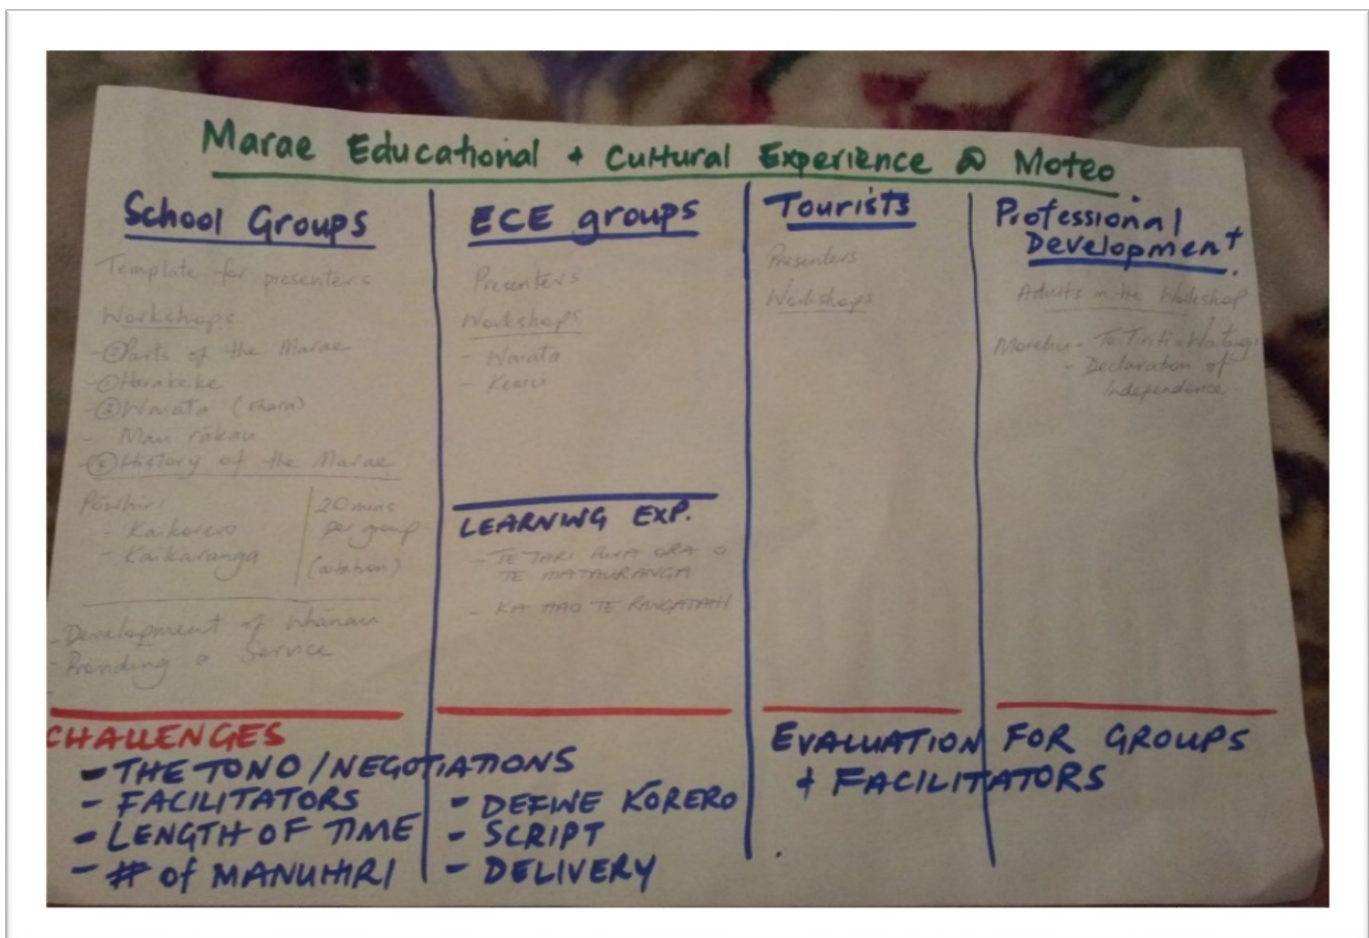 Marae Educational + Cultural Experience @ Moteo.
School Groups
Template for presenters
Workshops
- ② Parts of the Marae
- ① Harakeke
- ③ Waiata
- Mau rākau
- ④ History of the Marae
Pōwhiri
- Kaikorero
- Kaikaranga
20 mins
per group
(rotation)
- Development of Whānau
- Providing a Service
ECE groups
Presenters
Workshops
- Waiata
- Kemu
LEARNING EXP.
- TE TARI PUNA ORA O
TE MATAURANGA
- KA HAO TE RANGATAHI
Tourists
Presenters
Workshops
Professional
Development.
Adults in the Workshop
Morehu - Te Tiriti o Waitangi
- Declaration of
Independence
CHALLENGES
- THE TONO / NEGOTIATIONS
- FACILITATORS
- LENGTH OF TIME
- # of MANUHIRI
- DEFINE KŌRERO
- SCRIPT
- DELIVERY
EVALUATION FOR GROUPS
+ FACILITATORS